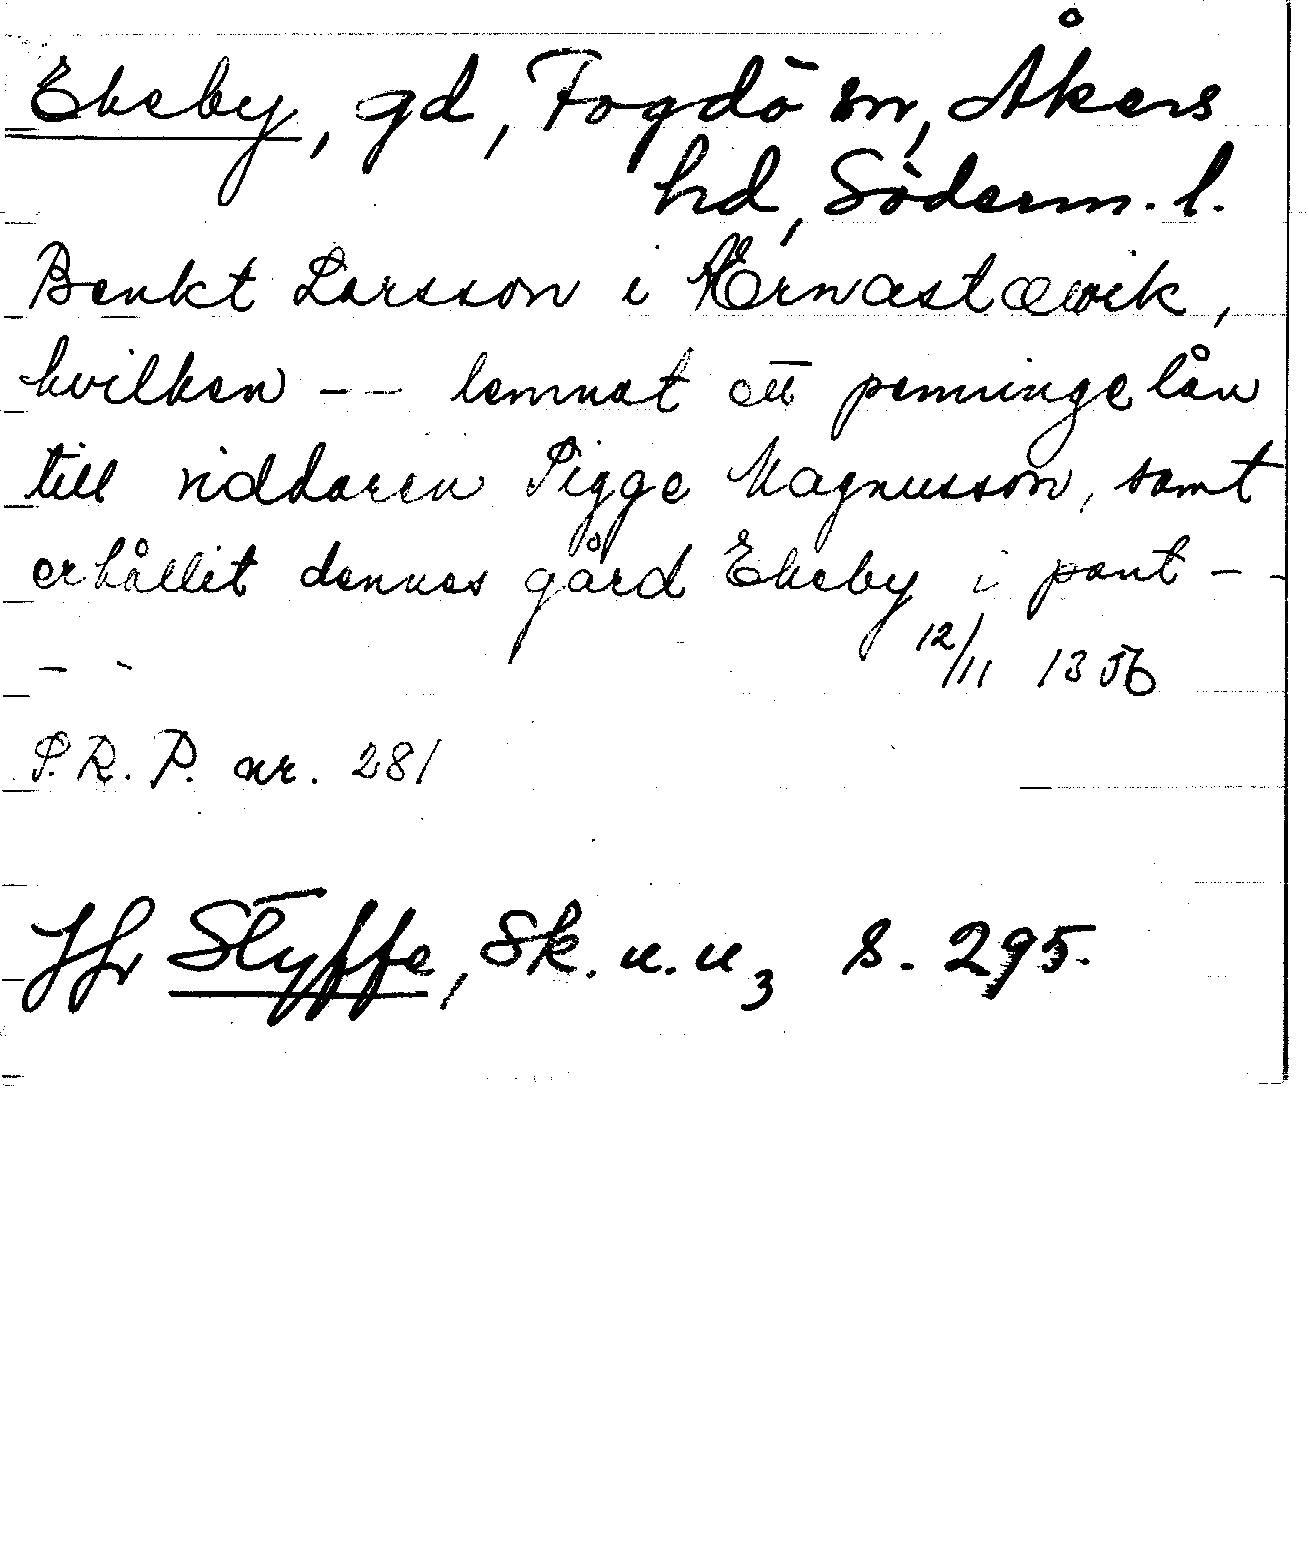 Ekeby, gd, Fogdö sn, Åkers
hd, Söderm. l.
Benkt Larsson i Ærnastæwik,
hvilken - - lemnat ett penningelån
till riddaren Pigge Magnusson, samt
erhållit dennes gård Ekeby i pant - -
- - 12/11 1356
P. R. P. nr. 281
Jfr Styffe, Sk. u. u, s. 295.